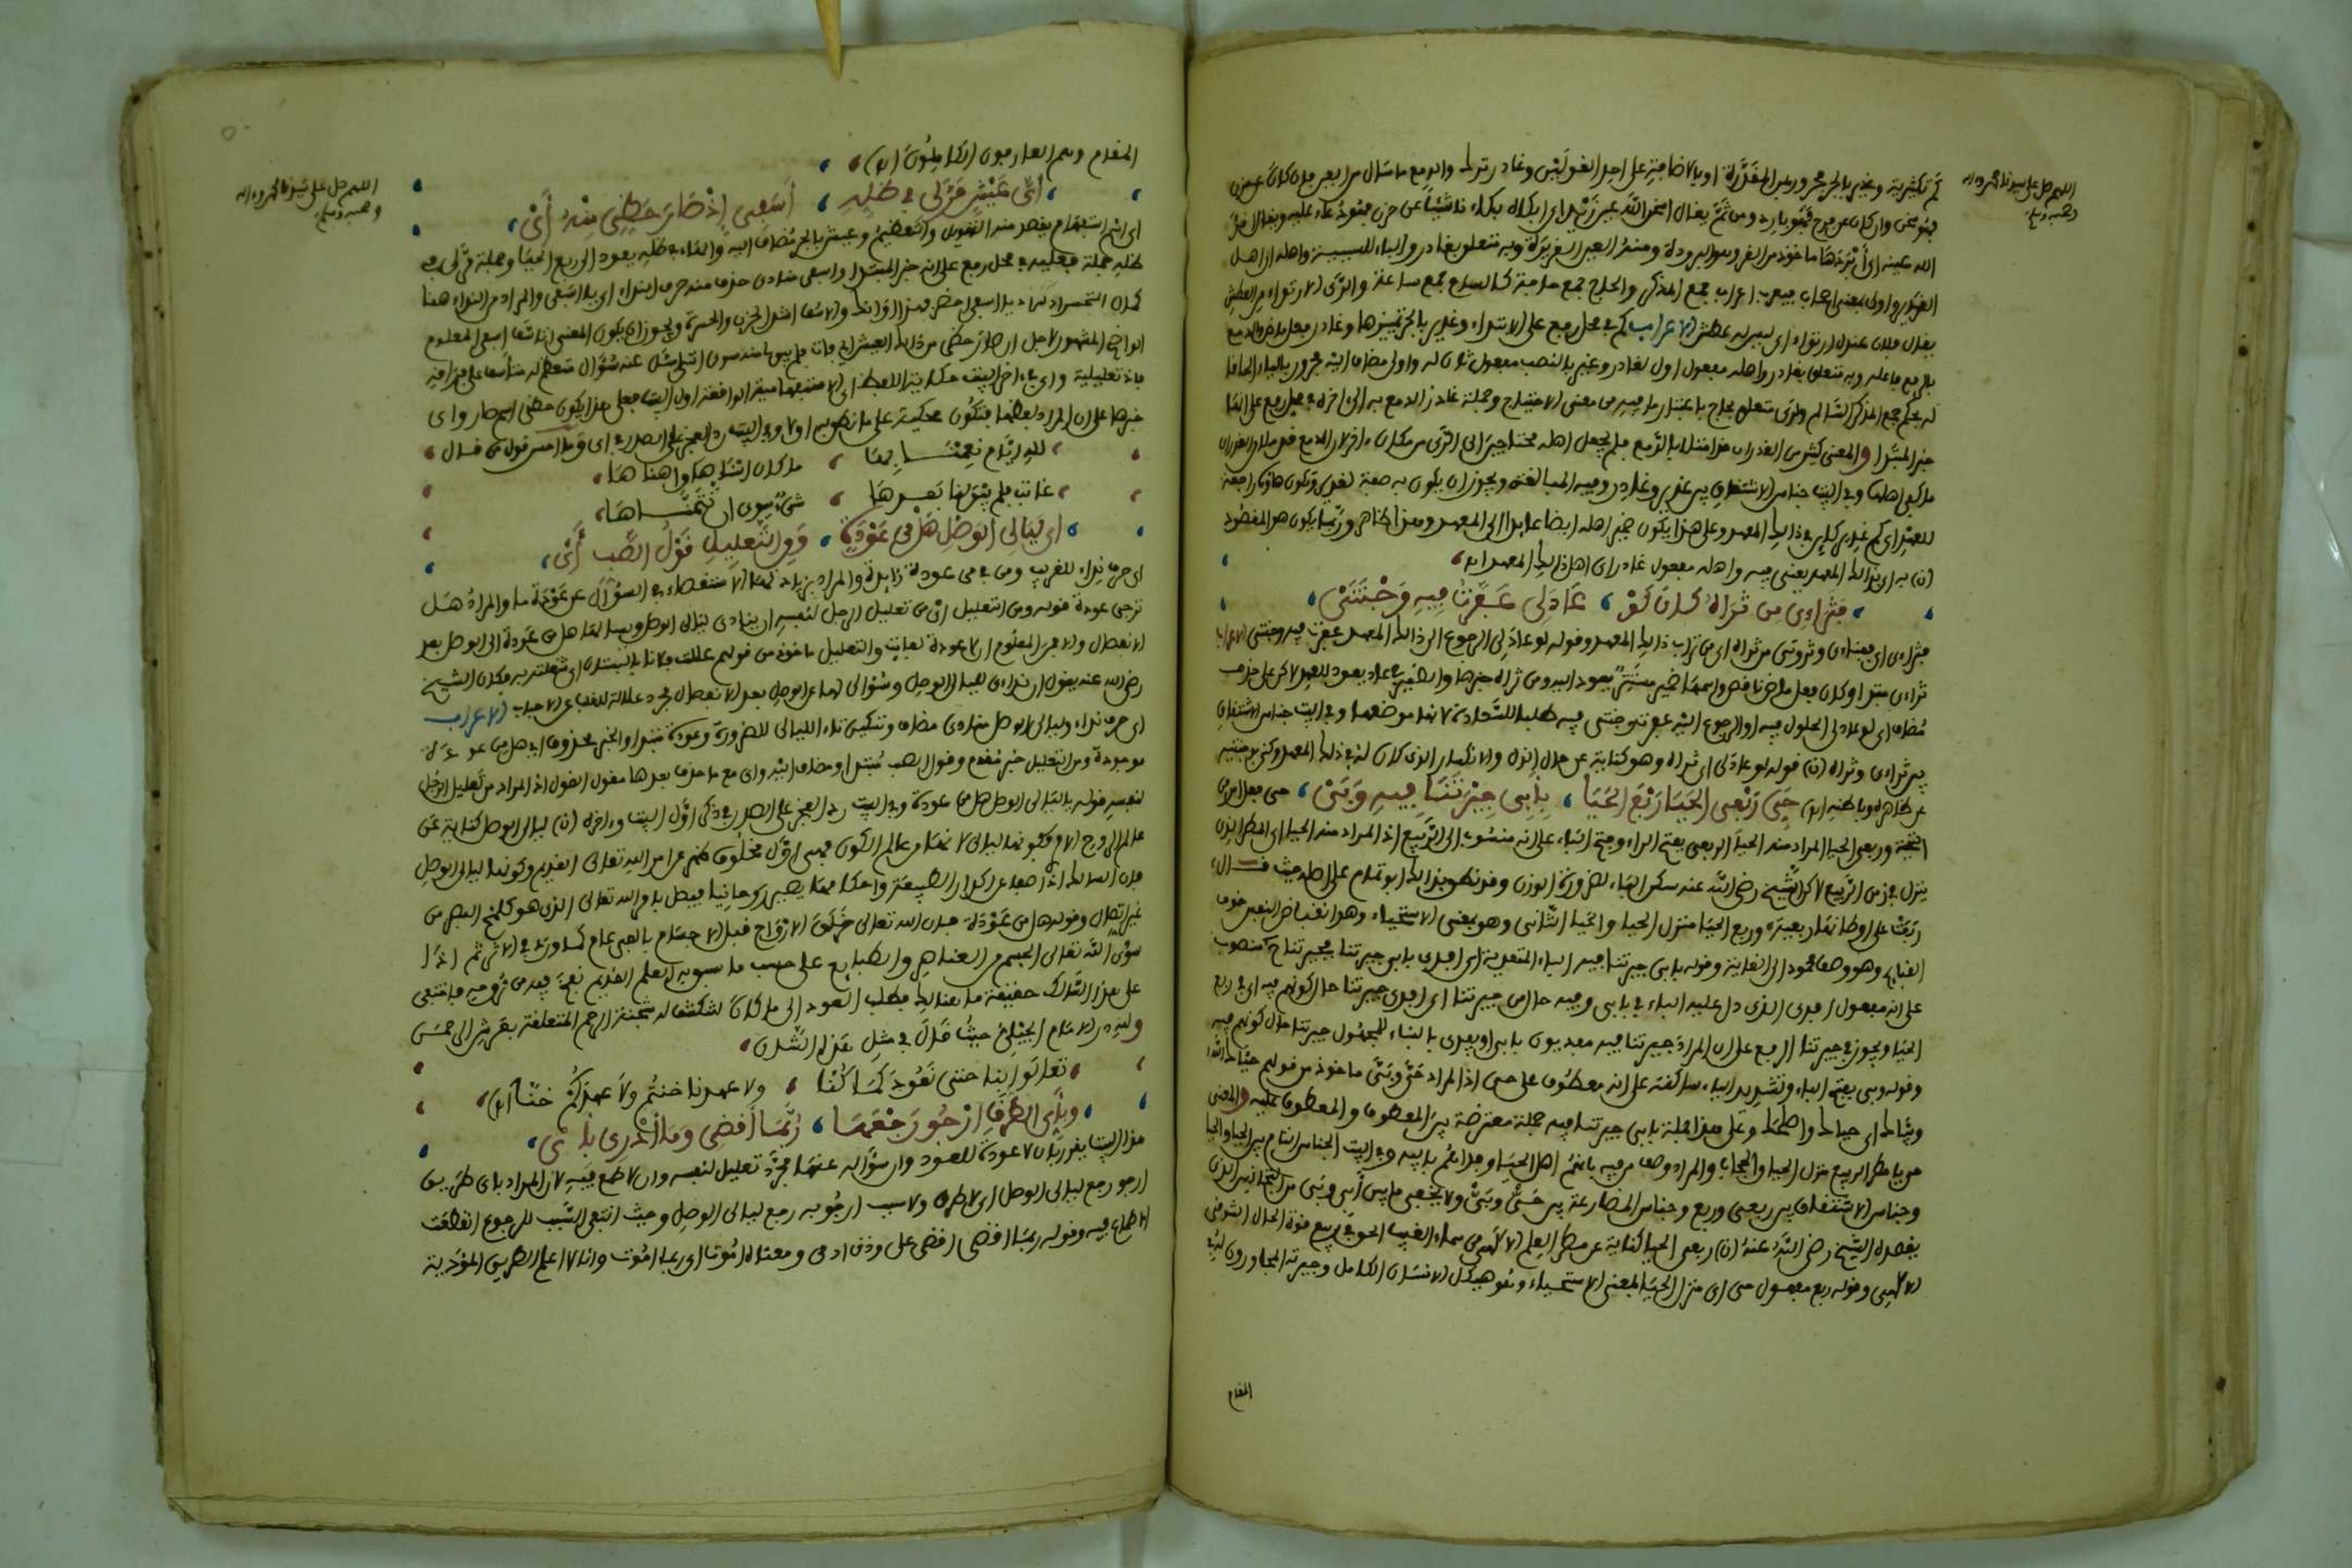 اللهم صل على سيدنا محمد وءاله
وصحبه وسلم
كم تكثيرية وغدير بالجر مجرور بمن المقدرة او بالاضافة على احد القولين وغادر ترك والدمع ما سال من العين فان كان عن حزن
فهو سخن وان كان عن فرح فهو بارد ومن ثم يقال اسخن الله عين زيد اي ابكاه بكاء ناشئا عن حزن فهو دعاء عليه ويقال اقر
الله عينه اي أبردها ماخوذ من القر وهو البرودة ومنه العين القريرة وبه متعلق بغادر والباء للسببية واهله اي اهل
الغدير واولى بمعنى اصحاب فيعرب اعراب جمع المذكر والحاج جمع حاجة كالساع جمع ساعة والري الارتواء من العطش
يقال فلان عنده ارتواء اي ليس به عطش الاعراب كم في محل رفع على الابتداء وغدير بالجر تمييزها وغادر فعل ماض والدمع
بالرفع فاعله وبه متعلق بغادر واهله مفعول اول لغادر وغير بالنصب مفعول ثان له واولى مضاف اليه مجرور بالياء الحاقا
له بحكم جمع المذكر السالم ولري متعلق بحاج باعتبار ما فيه من معنى الاحتياج وجملة غادر الدمع به الى اخره في محل رفع على انها
خبر المبتدا والمعنى كثير من الغدران قد امتلا بالدمع فلم يجعل اهله محتاجين الى الري من مكان ءاخر لان الدمع قد ملا الغدران
ما كفى اهلها وفي البيت جناس الاشتقاق بين غدير وغادر وفيه المبالغة ويجوز ان يكون به صفة لغدير وتكون هاؤه راجعة
للمعهد اي كم غدير كائن في ذلك المعهد وعلى هذا يكون ضمير اهله ايضا عائدا الى المعهد وهذا الظاهر وربما يكون هو المقصود
(ن) به اي بذلك المعهد يعني فيه واهله مفعول غادر اي اهل ذلك المعهد اه
فثراءي من ثراه كان لو ، عادلي عفرت فيه وجنتي
فثراءي اي فغناءي وثروتي من ثراه اي من تراب ذلك المعهد وقوله لو عاد لي الرجوع الى ذلك المعهد عفرت فيه وجنتي الاعراب
ثراءي مبتدا وكان فعل ماض ناقص واسمها ضمير مستتر يعود اليه ومن ثراه خبرها والضمير في عاد يعود للمعهد لاكن على حذف
مضاف اي لو عاد لي الحلول فيه او الرجوع اليه عفرت وجنتي فيه طلبا للسعادة لانها موضعها وفي البيت جناس الاشتقاق
بين ثراءي وثراه (ن) قوله لو عاد لي اي ثراه وهو كناية عن حال الذل والانكسار الذي كان له في ذلك المعهد
عن ظاهره وباطنه اه حي ربعي الحيا ربع الحيا ، بأبي جيرتنا فيه وبي ، حي فعل امر من
التحية وربعي الحيا المراد منه الحيا الربعي بفتح الراء وفتح الباء على انه منسوب الى الربيع اذ المراد منه الحيا اي المطر الذي
ينزل في زمن الربيع لاكن الشيخ رضي الله عنه سكن الباء لضرورة الوزن وقد نطق بذلك ابو تمام على اصله حيث قال
وربع الحيا منزل الحيا والحيا الثاني وهو بمعنى الاستحياء وهو انقباض النفس خوف
القبائح وهو وصف محمود الى الغاية وقوله بابي جيرتنا فيه الباء المتعدية اي افدي بابي جيرتنا فجيرتنا منصوب
على انه مفعول افدي الذي دل عليه الباء في بابي وفيه حال من جيرتنا اي افدي جيرتنا حال كونهم فيه اي في ربع
الحيا ويجوز في جيرتنا الرفع على ان المراد جيرتنا فيه مفديون بابي او يفدى بالبناء للمجهول جيرتنا حال كونهم فيه
وقوله وبي بفتح الباء وتشديد الياء ساكنة على انه معطوف على حي اذ المراد حي وبي ماخوذ من قولهم حياك الله
وبياك اي حياك واضحكك وعلى هذا فجملة بابي جيرتنا فيه جملة معترضة بين المعطوف والمعطوف عليه والمعنى
حي يا مطر الربيع منزل الحيا والحجاب والمراد وصف من فيه بانهم اهل الحيا وفي البيت الجناس التام بين الحيا والحيا
وجناس الاشتقاق بين ربعي وربع وجناس المضارعة بين حي وبي ولا يخفى ما بين أبي وبي من التجانس الذي
يقصده الشيخ رضي الله عنه (ن) ربعي الحيا كناية عن مطر العلم الالهي من سماء الغيب
الالهي وقوله ربع مفعول حي اي منزل الحيا بمعنى الاستحياء وهو هيكل الانسان الكامل وجيرته المجاورون لهذه
المقام
اللهم صل على سيدنا محمد وءاله
وصحبه وسلم
المقام وهم العارفون الكاملون اه
أي عيش مر لي في ظله ، أسفي إذ صار حظي منه أي
اي اسم استفهام يقصد منه التهويل والتعظيم وعيش بالجر مضاف اليه والهاء في ظله يعود الى ربع الحيا وجملة مر لي في
ظله جملة فعلية في محل رفع على انه خبر المبتدا واسفي منادى حذف منه حرف النداء اي يا اسفي والمراد من النداء هنا
كمال التحسر اذ نداء يا اسفي احضر فهذا اوانك والاسف اشد الحزن والحسرة ويجوز ان يكون المعنى انا اسفا اسفي المعلوم
الواضح المشهور لاجل ان صار حظي من ذلك العيش الذي فات فلم يبق منه سوى انني اسئل عنه سؤال متعظم له متأسف على فراقه
فاذ تعليلية واي في ءاخر البيت حكاية اللفظ اي الاستفهامية الواقعة اول البيت فعلى هذا يكون حظي اسم صار واي
خبرها على ان المراد لفظها فتكون محكية على ما نطق به اولا وفي البيت رد العجز على الصدر في اي وما احسن قول من قال
لله ايام نعمنا بها ، ما كان اشهاها واهناها
غابت فلم يبق لنا بعدها ، شيء سوى ان نتمناها
اي ليالي الوصل هل من عودة ، ومن التعليل قول الصب أي
اي حرف نداء للقريب ومن في من عودة زائدة والمراد بزيادتها الاستقصاء في السؤال عن عودة ما والمراد هل
ترجى عودة قوله ومن التعليل اي من تعليل الرجل لنفسه ان ينادي ليالي الوصل ويسالها هل من عودة الى الوصل بعد
الانفصال والامر المعلوم ان لا عودة لفائت والتعليل ماخوذ من قولهم عللت فلانا بالبستان اي شغلته به وكان الشيخ
رضي الله عنه يقول ان نداءي لليالي الوصل وسؤالي لها عن الوصل بعد الانفصال مجرد علالة للقلب عن الاحباب الاعراب
اي حرف نداء وليالي الوصل منادى مضاف وتسكين ياء الليالي للضرورة وعودة مبتدا والخبر محذوف اي هل من عودة
موجودة ومن التعليل خبر مقدم وقول الصب مبتدا ومضاف اليه واي مع ما حذف بعدها مقول القول اذ المراد من تعليل الرجل
لنفسه قوله يا ليالي الوصل هل من عودة وفي البيت رد العجز على الصدر في ذكر اي اول البيت وءاخره (ن) ليالي الوصل كناية عن
عالم الروح الامري وكونها ليالي لانها من عالم الكون فهي اول مخلوق ظهر عن امر الله تعالى القديم وكونها ليالي الوصل
فان السالك اذا صفا عن اكدار الطبيعة واحكامها يصير روحانيا فيتصل بامر الله تعالى الذي هو كلمح البصر من
غير اتصال وقوله هل من عودة فان الله تعالى خلق الارواح قبل الاجسام بالفي عام كما ورد في الاثر ثم اذا
سوى الله تعالى الجسم من العناصر والطبايع على حسب ما سبق به العلم القديم نفخ فيه من روحه فاذا تنبه
على هذا السالك حقيقة ما هنالك فطلب العود الى ما كان لتنكشف له شجنة الرحم المتعلقة بعرش الرحمن
ولله در الامام الجيلي حيث قال في مثل هذا الشان
تعالوا بنا حتى نعود كما كنا ، ولا عهدنا خنتم ولا عهدكم خنا اه
وبأي الطرق ارجو رجعها ، ربما أقضي وما أدري بأي
هذا البيت يقرر بان لا عودة للعود وان سؤاله عنها مجرد تعليل لنفسه وان لا طمع فيه لان المراد باي طريق
ارجو رجع ليالي الوصل اي لا طريق ولا سبب ارجو به رجع ليالي الوصل وحيث انتفى السبب للرجوع انقطعت
الاطماع فيه وقوله ربما اقضي اقضي على وزن ارمي ومعناه اموت اي ربما اموت وانا لا اعلم الطريق المؤدية